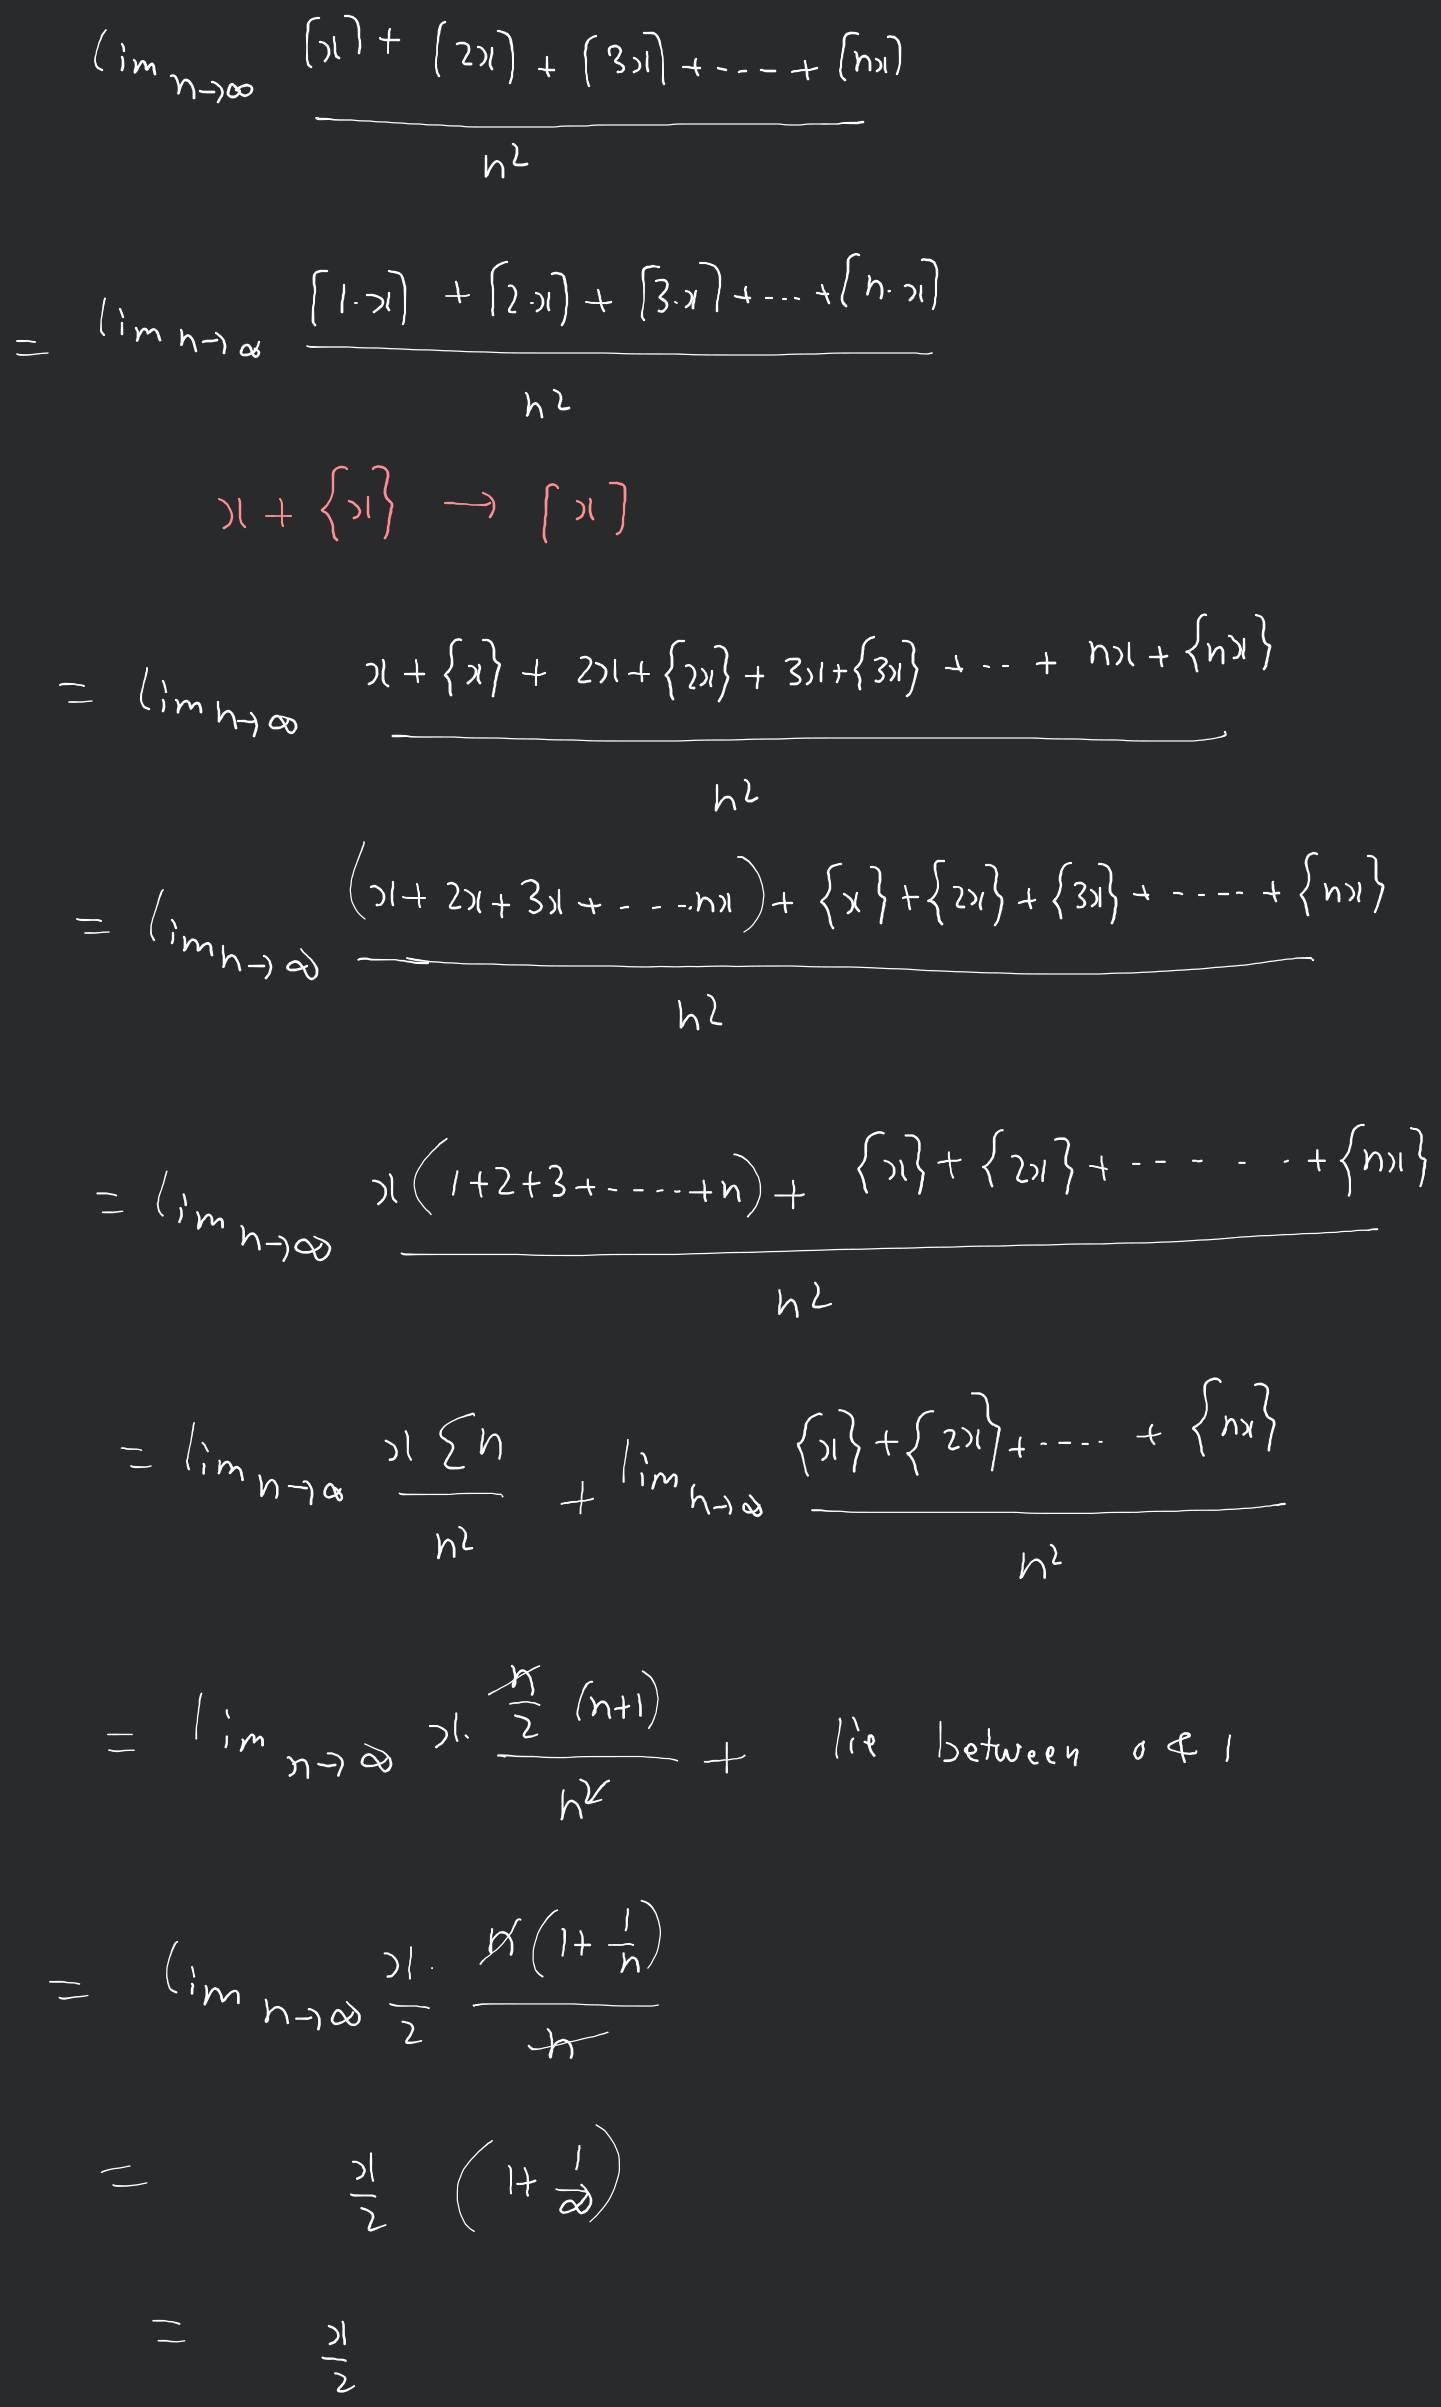 lim n→∞ ⌈x⌉ + ⌈2x⌉ + ⌈3x⌉ + ---- + ⌈nx⌉ / n²
= lim n→∞ ⌈1·x⌉ + ⌈2·x⌉ + ⌈3·x⌉ + --- + ⌈n·x⌉ / n²
x + {x} → ⌈x⌉
= lim n→∞ x + {x} + 2x + {2x} + 3x + {3x} + --- + nx + {nx} / n²
= lim n→∞ (x + 2x + 3x + ---- nx) + {x} + {2x} + {3x} + ----- + {nx} / n²
= lim n→∞ x(1+2+3+-----+n) + {x} + {2x} + ------ + {nx} / n²
= lim n→∞ x Σn / n² + lim n→∞ {x} + {2x} + ---- + {nx} / n²
= lim n→∞ x· n/2 (n+1) / n² + lie between 0 & 1
= lim n→∞ x/2 · n(1 + 1/n) / n
= x/2 (1 + 1/∞)
= x/2